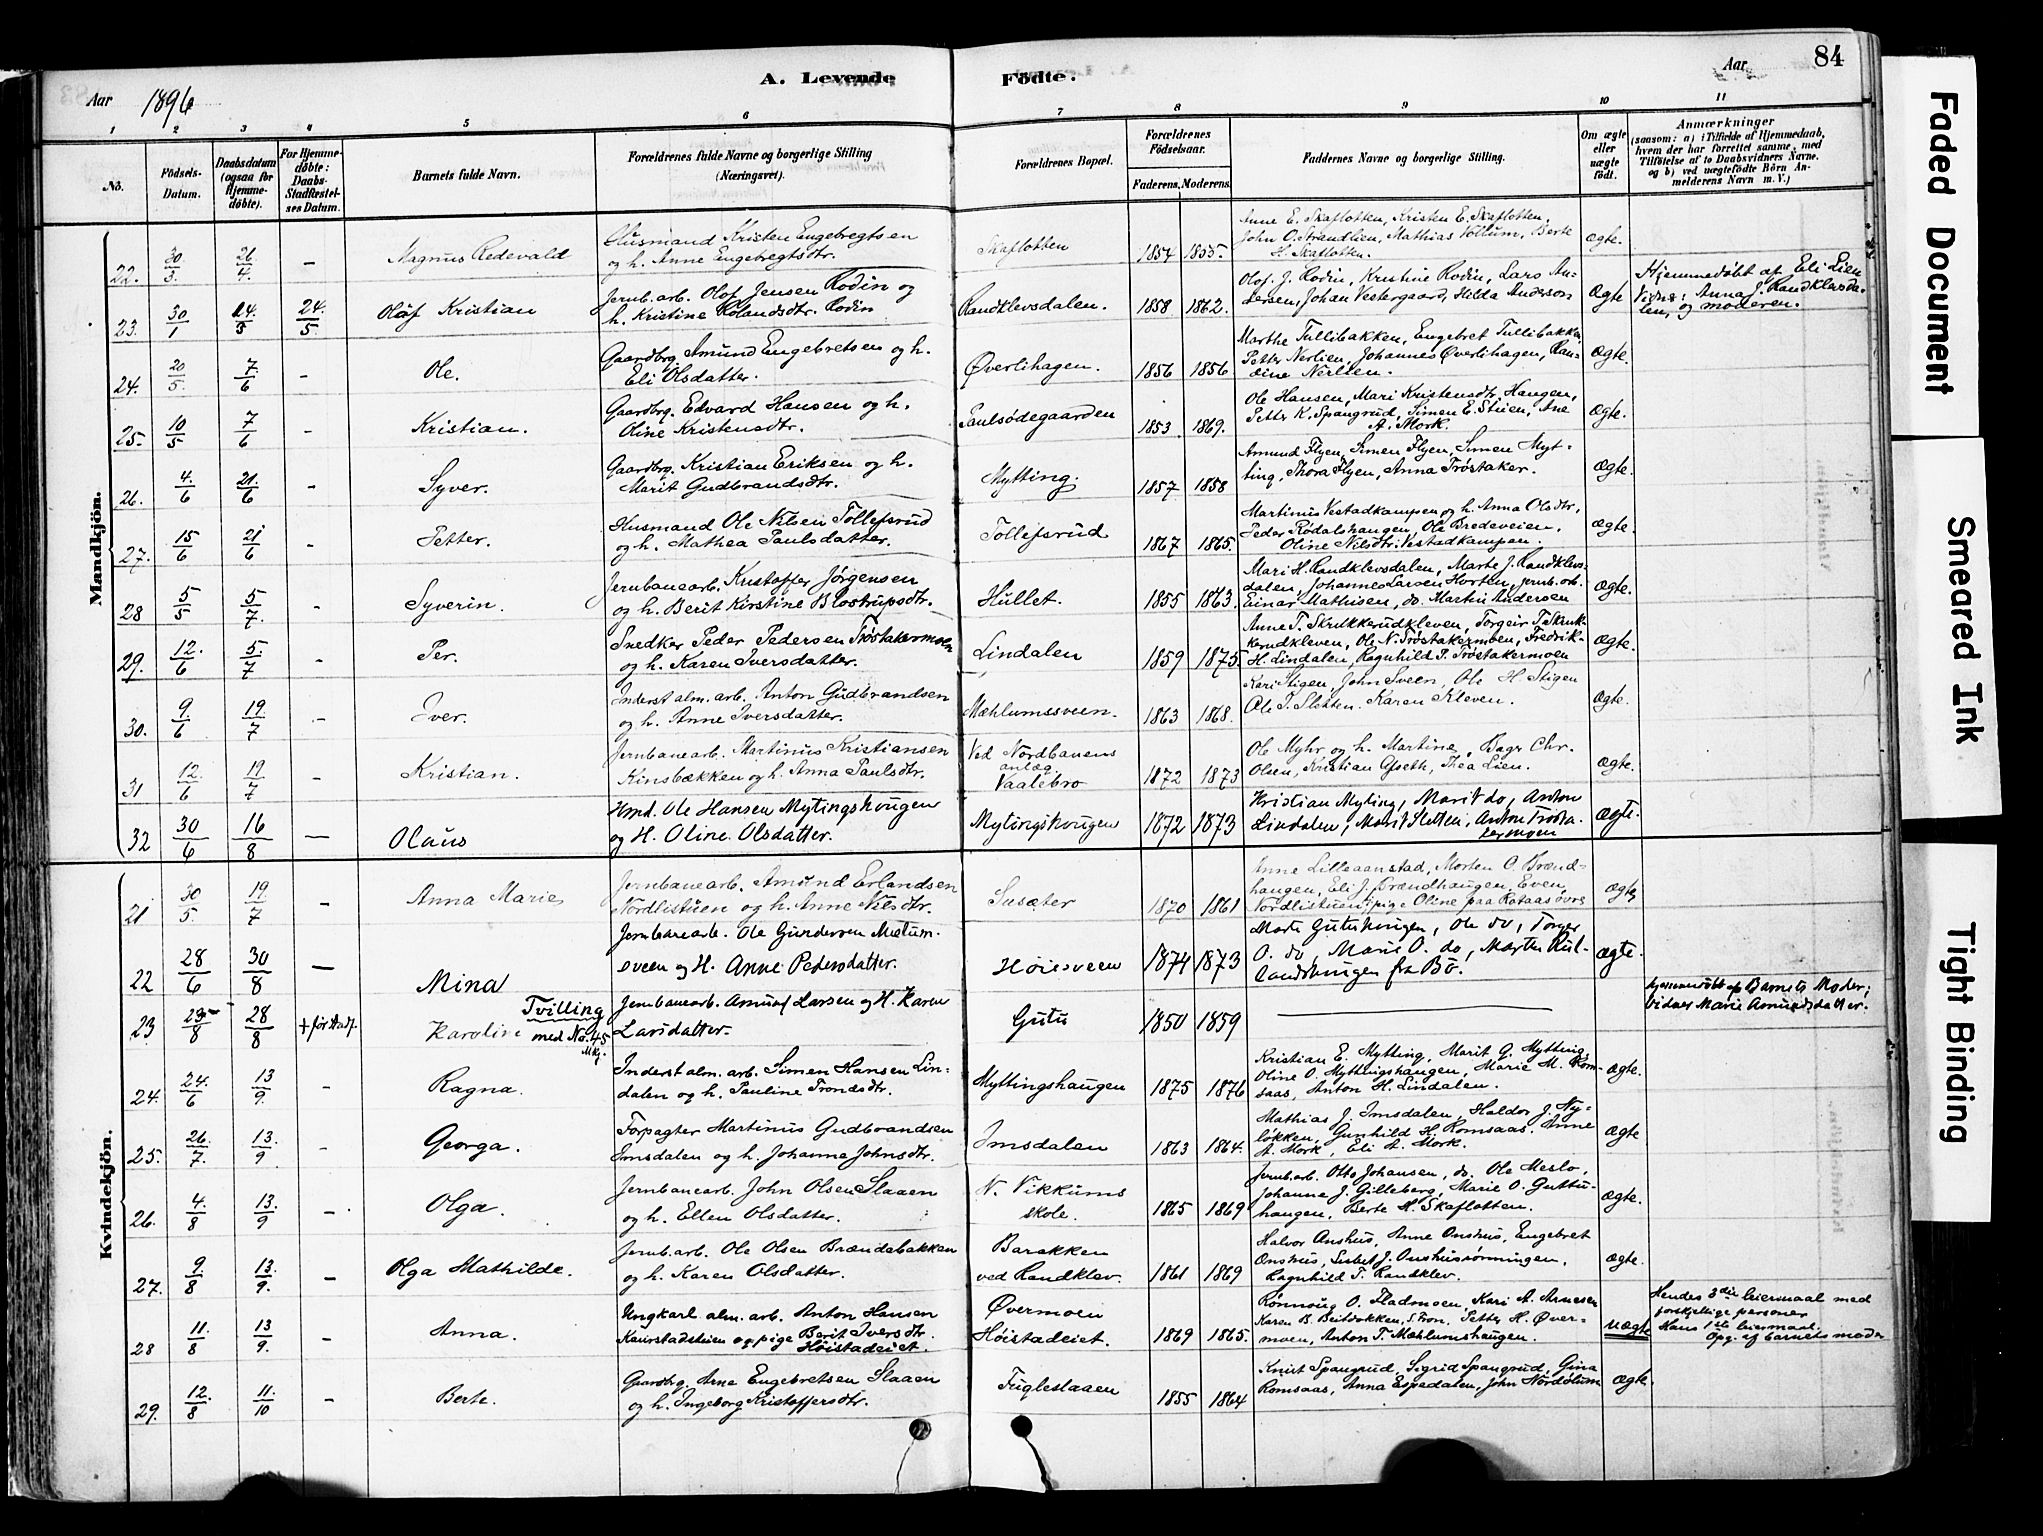 84
Aar 1896
A. Levende Fødte.
Aar
1 2 3 4 5 6 7 8 9 10 11
No.
Fødsels-Datum.
Daabsdatum (ogsaa for Hjemme-døbte).
For Hjemme-døbte: Daabs-Stadfæstel-ses Datum.
Barnets fulde Navn.
Forældrenes fulde Navne og borgerlige Stilling (Næringsvei).
Forældrenes Bopæl.
Forældrenes Fødselsaar.
Faderens. Moderens.
Faddernes Navne og borgerlige Stilling.
Om ægte eller uægte født.
Anmærkninger
(saasom: a) i Tilfælde af Hjemmedaab, hvem der har forrettet samme, med Tilføielse af to Daabsvidners Navne. og b) ved uægtefødte Børn An-melderens Navn m. V.)
Mandkjön.
22. 30/3. 26/4. – Magnus Redevald
Husmand Kristen Engebregtsen
og h. Anne Engebregtsdtr.
Skaflotten 1854 1855.
Anne E. Skaflotten, Kristen E. Skaflotten,
John O. Strandlien, Mathias Vollum, Berte
H. Skaflotten.
Ægte.
23. 30/1 24./5 24./5. Olaf Kristian
Jernb.arb. Olof Jensen Rodin og
h. Kristine Rolandsdtr. Rodin
Randklevsdalen. 1858 1862.
Olof J. Rodin, Kristine Rodin, Lars An-
dersen, Johan Vestergaard, Hilda Anderson
Ægte
Hjemmedøbt af Eli Lien
Vidne: Anna J. Randklevsda-
len, og moderen.
24. 20/5. 7/6 – Ole.
Gaardbrg. Amund Engebretsen og h.
Eli Olsdatter.
Øverlihagen. 1856 1856
Marthe Tullibakken, Engebret Tullibakken
Petter Nerlien, Johannes Øverlihagen, Ran-
dine Nerlien.
Ægte.
25. 10/5 7/6 – Kristian.
Gaardbrg. Edvard Hansen og h.
Oline Kristensdtr.
Paulsødegaarden 1853. 1869.
Ole Hansen, Mari Kristensdtr. Haugen,
Petter K. Spangrud, Simen E. Stuen, Ane
A. Mork.
Ægte.
26. 4./6 21./6 – Syver.
Gaardbrg. Kristian Eriksen og h.
Marit Gudbrandsdtr.
Mytting. 1857 1858
Amund Flyen, Simen Flyen, Simen Myt-
ting, Thora Flyen, Anna Trøstaker.
Ægte.
27. 15/6 21/6 – Petter.
Husmand Ole Nilsen Tollefsrud
og h. Mathea Paulsdatter.
Tollefsrud 1867 1865.
Martinus Vestadkampen og h. Anna Olsdtr,
Peder Rødalshaugen, Ole Bredeveien,
Oline Nilsdtr. Vestadkampen.
Ægte.
28 5/5 5/7. – Syverin.
Jernbanearb. Kristoffer Jørgensen
og h. Berit Kirstine Blostrupsdtr.
Hullet. 1855 1863.
Mari H. Randklevsdalen, Marte J. Randklevs-
dalen, Johannes Larsen Horten, jernb. arb.
Einar Mathisen, do. Martin Andersen
Ægte.
29. 12./6 5./7 – Per.
Snedker Peder Pedersen Trøstakermoen
og h. Karen Iversdatter.
Lindalen 1859 1875.
Anne T. Skrukkerudkleven, Torgeir T. Skruk-
kerudkleven, Ole N. Trøstakermoen, Fredrik-
H. Lindalen, Ragnhild P. Trøstakermoen
Ægte.
30. 9./6 19/7 – Iver.
Inderst alm. arb. Anton Gudbrandsen
og h. Anne Iversdatter.
Mæhlumssveen. 1863 1868.
Kari Stigen, John Sveen, Ole H Stigen
Ole T. Sletten. Karen Kleven.
Ægte.
31 12./6 19/7 – Kristian.
Jernbanearb. Martinus Kristiansen
Kinsbækken og h. Anna Paulsdtr.
Ved Nordbanens
anlæg
Vaalebro 1872 1873
Ole Myhr og h. Martine, Bager Chr.
Olsen, Kristian Afseth, Thea Lien.
Ægte.
32 30/6 16/8 – Olaus
Hmd. Ole Hansen Mytingshougen
og H. Oline Olsdatter.
Mytingshougen 1872 1873
Kristian Myting, Marit do, Anton
Lindalen, Marit Sletten, Anton Trøsta-
kermoen
Ægte.
Kvindekjön.
21 30/5 19/7 – Anna Marie
Jernbanearb. Amund Erlandsen
Nordlistuen og h. Anne Nilsdtr.
Susæter 1870 1861
Anne Lilleaanstad, Morten O. Brænd-
haugen, Eli J. Brændhaugen, Even
Nordlistuen, pige Oline paa Rotaas øvre
Ægte
22 28/6 30/8 – Mina
Jernbanearb. Ole Gundersen Mælum-
sveen og H. Anne Pedersdatter.
Høiesveen 1874 1873
Marte Gutuhougen, Ole do, Torger
O. do, Marie O. do, Marthe Rul-
landshaugen fra Bø.
Ægte.
23 25/8 28/8 + før stadf. Karoline
Tvilling
med No. 45
Mkj.
Jernbanearb. Amund Larsen og H. Karen
Larsdatter.
Gutu 1850 1859
Hjemmedøbt af Barnets Moder;
vidner Marie Amundsdatter.
24. 24./6 13/9. – Ragna.
Inderst alm. arb. Simen Hansen Lin-
dalen og h. Pauline Trondsdtr.
Myttingshaugen 1875 1876
Kristian E. Mytting, Marit G. Mytting,
Oline O. Myttingshaugen, Marie M. Rom-
saas, Anton H. Lindalen.
Ægte.
25. 26./7. 13./9 – Georga.
Forpagter Martinus Gudbrandsen
Imsdalen og h. Johanne Johnsdtr.
Imsdalen 1863 1864.
Mathias J. Imsdalen, Haldor J. Ny-
løkken, Gunhild H. Romsaas. Anne
A. Mork, Eli A. Mork.
Ægte
26. 4./8 13./9 – Olga.
Jernbanearb. John Olsen Slaaen
og h. Ellen Olsdatter.
N. Vikkums
skole. 1865 1869
Jernb.arb. Otto Johansen, do. Ole Meslo,
Johanne J. Gilleberg, Marie O. Guttu-
haugen, Berte H. Skaflotten.
Ægte.
27. 9./8 13./9. – Olga Mathilde.
Jernb.arb. Ole Olsen Brændebakken
og h. Karen Olsdatter.
Barakken
ved Randklev. 1861 1869
Halvor Onshus, Anne Onshus, Engebret
Onshus, Sisbet J. Onshusrønningen,
Ragnhild T. Randklev.
Ægte.
28 11./8 13/9. – Anna.
Ungkarl alm. arb. Anton Hansen
Kaurstadstuen og pige Berit Iversdtr.
Høistadeiet.
Øvermoen
Høistadeiet 1869 1865.
Rønnoug O. Fladmoen, Kari A. Arnesen
Karen B. Beitdokken, S. Fron, Petter H. Øver-
moen, Anton T. Mæhlumshaugen.
Uægte
Hendes 3die leiermaal med
forskjellige personer
Hans 1ste leiermaal.
Opg. af barnets moder
29. 12./8 11./10 – Berte.
Gaardbrg. Arne Engebretsen Slaaen
og h. Ingeborg Kristoffersdtr.
Fugleslaaen 1855 1864
Knut Spangrud, Sigrid Spangrud, Gina
Romsaas, Anna Espedalen, John Nordølum
Ægte.
Faded Document
Smeared Ink
Tight Binding